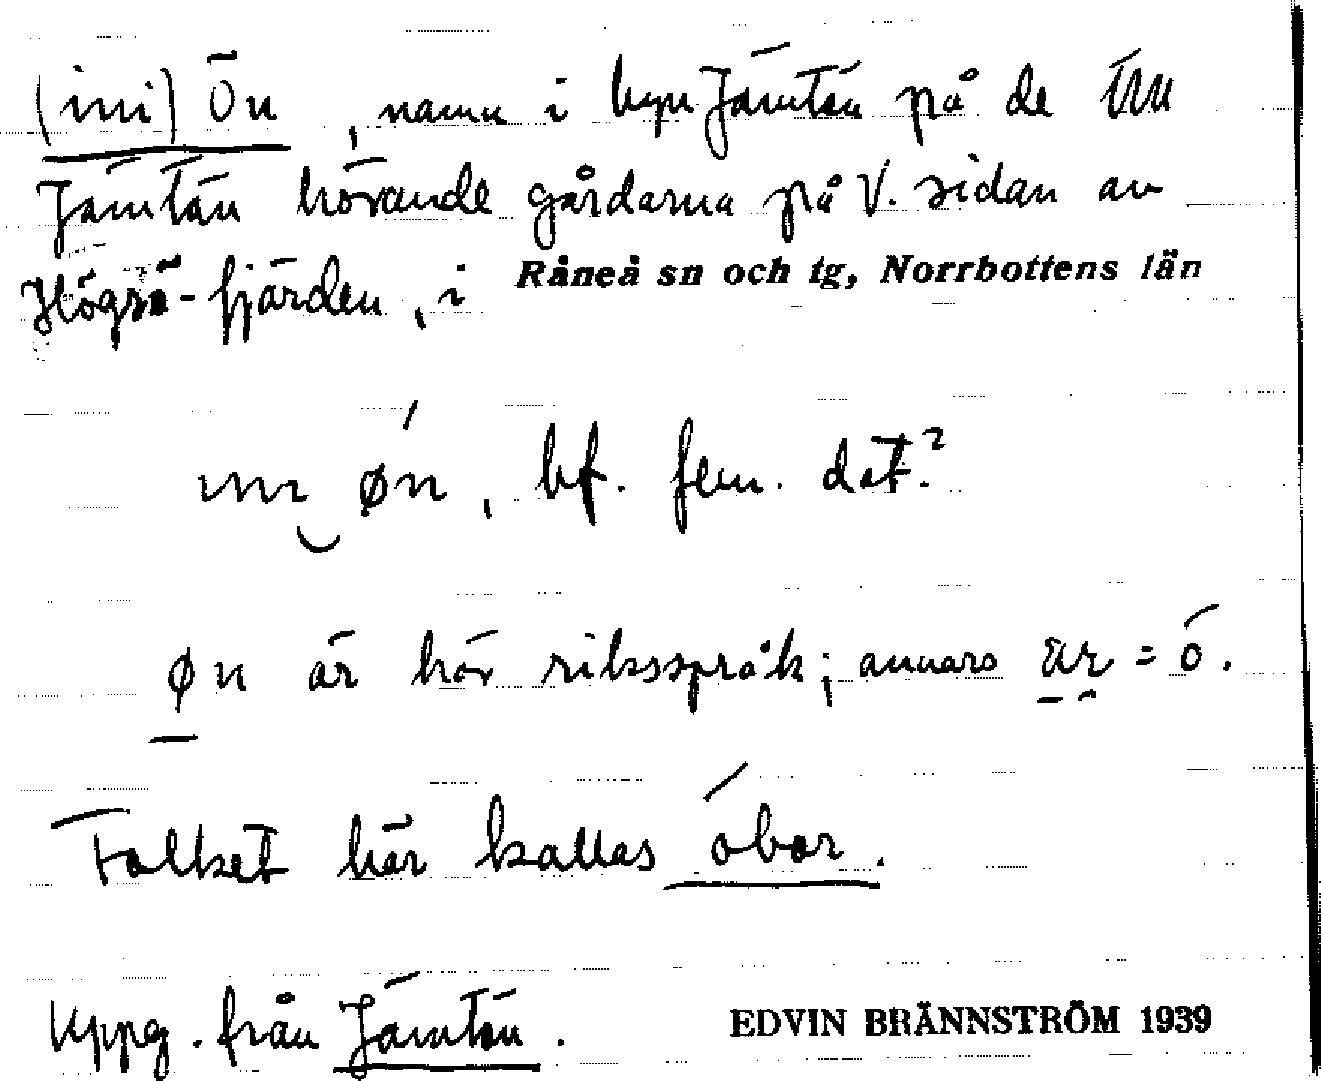 (ini) Ön, namn i byn Jämtön på de till
Jämtön hörande gårdarna på V. sidan av
Högsö-fjärden, i Råneå sn och tg, Norrbottens län
ini øn, bf. fem. dat.?
øn är här riksspråk; annars = ö.
Folket här kallas öbor.
Uppg. från Jämtön.
EDVIN BRÄNNSTRÖM 1939